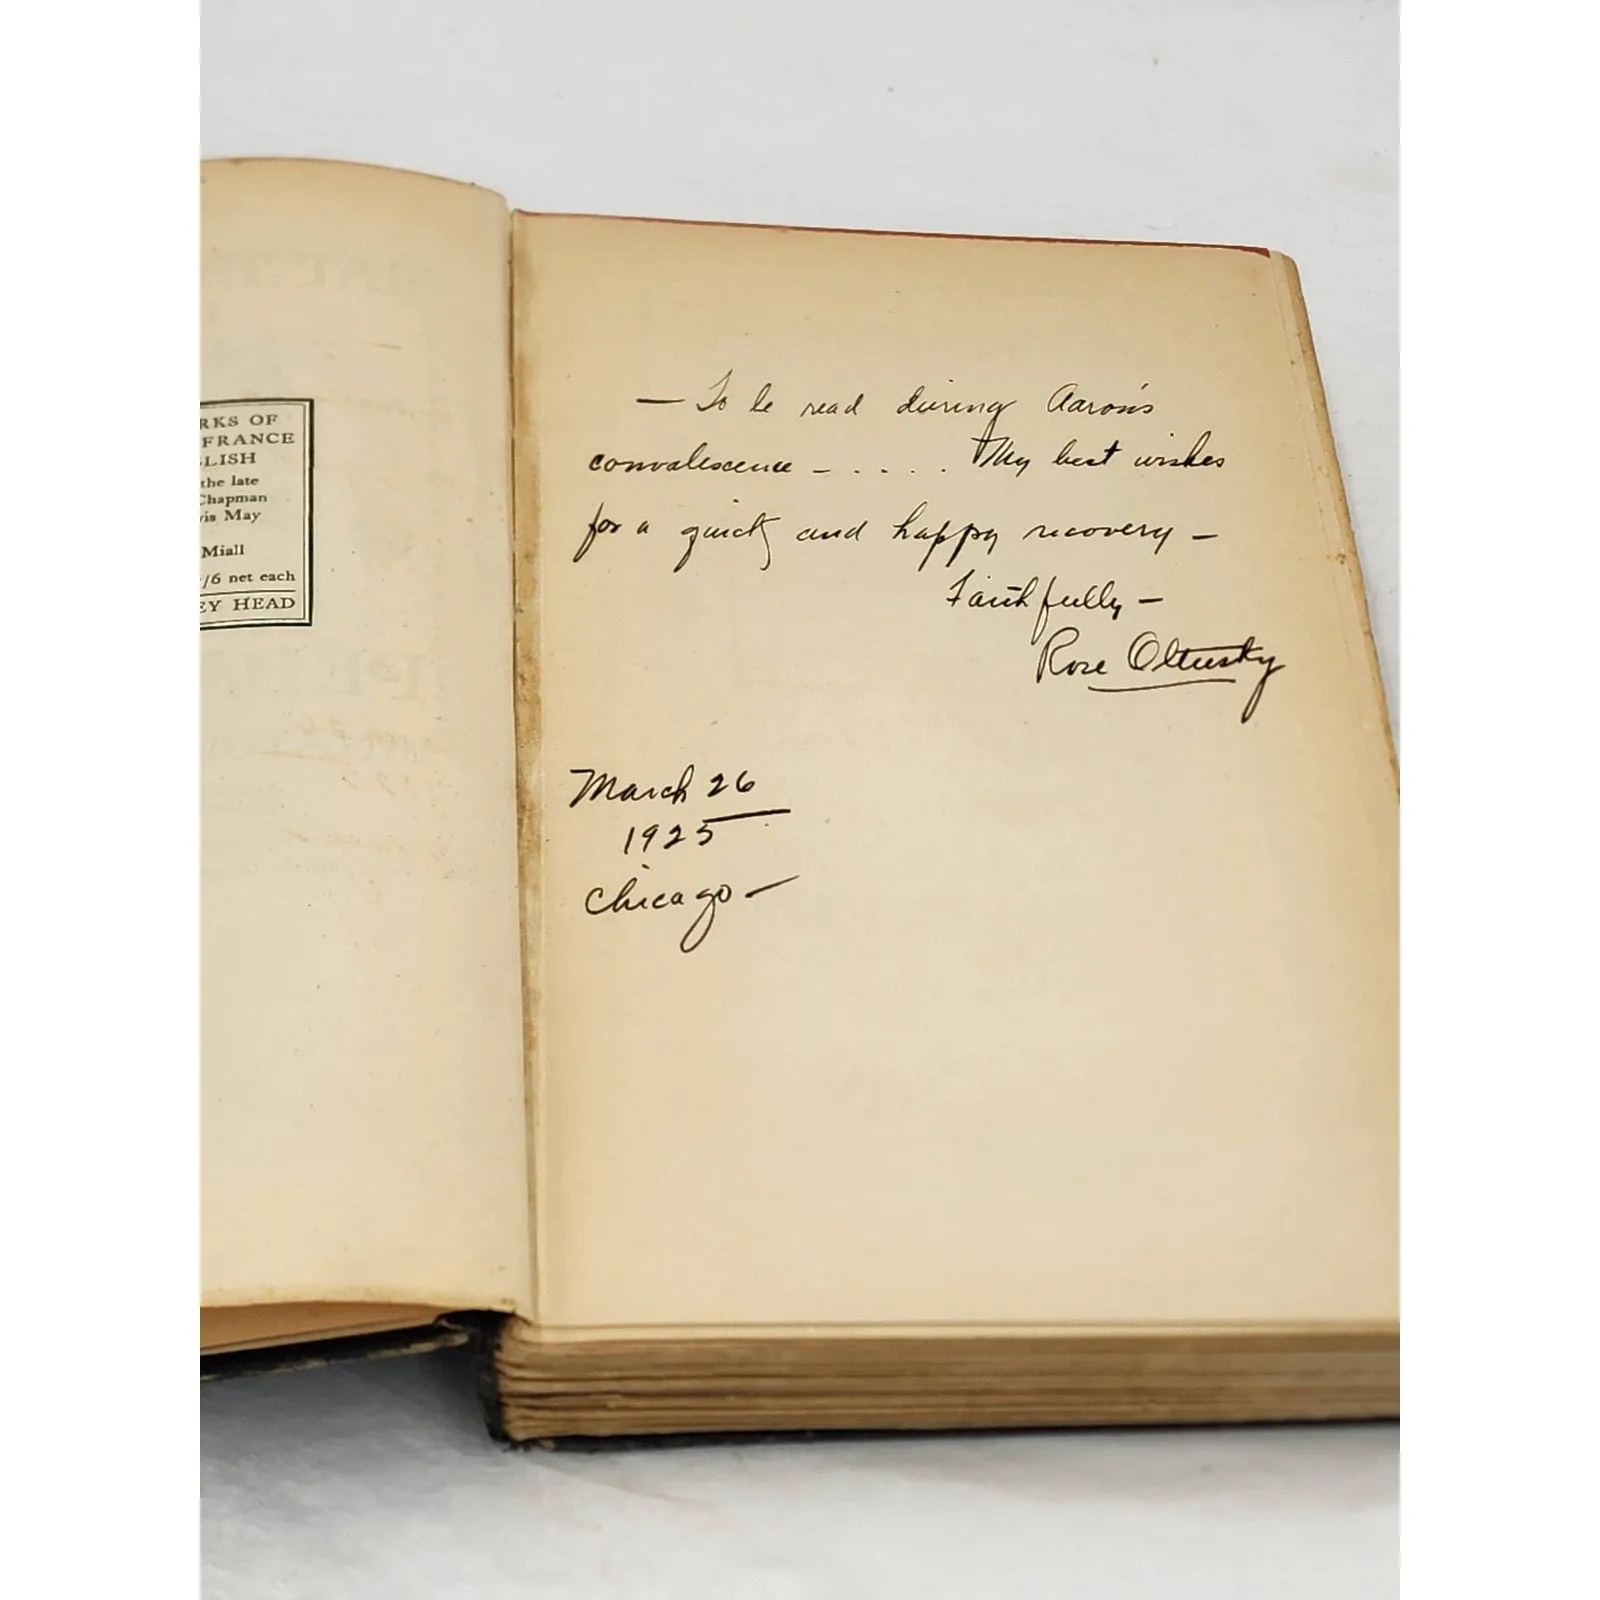 RKS OF
FRANCE
LISH
the late
Chapman
is May
Miall
/6 net each
EY HEAD
— To be read during Aaron's
convalescence – . . . . . My best wishes
for a quick and happy recovery –
Faithfully –
Rose Oltusky
March 26
1925
Chicago –